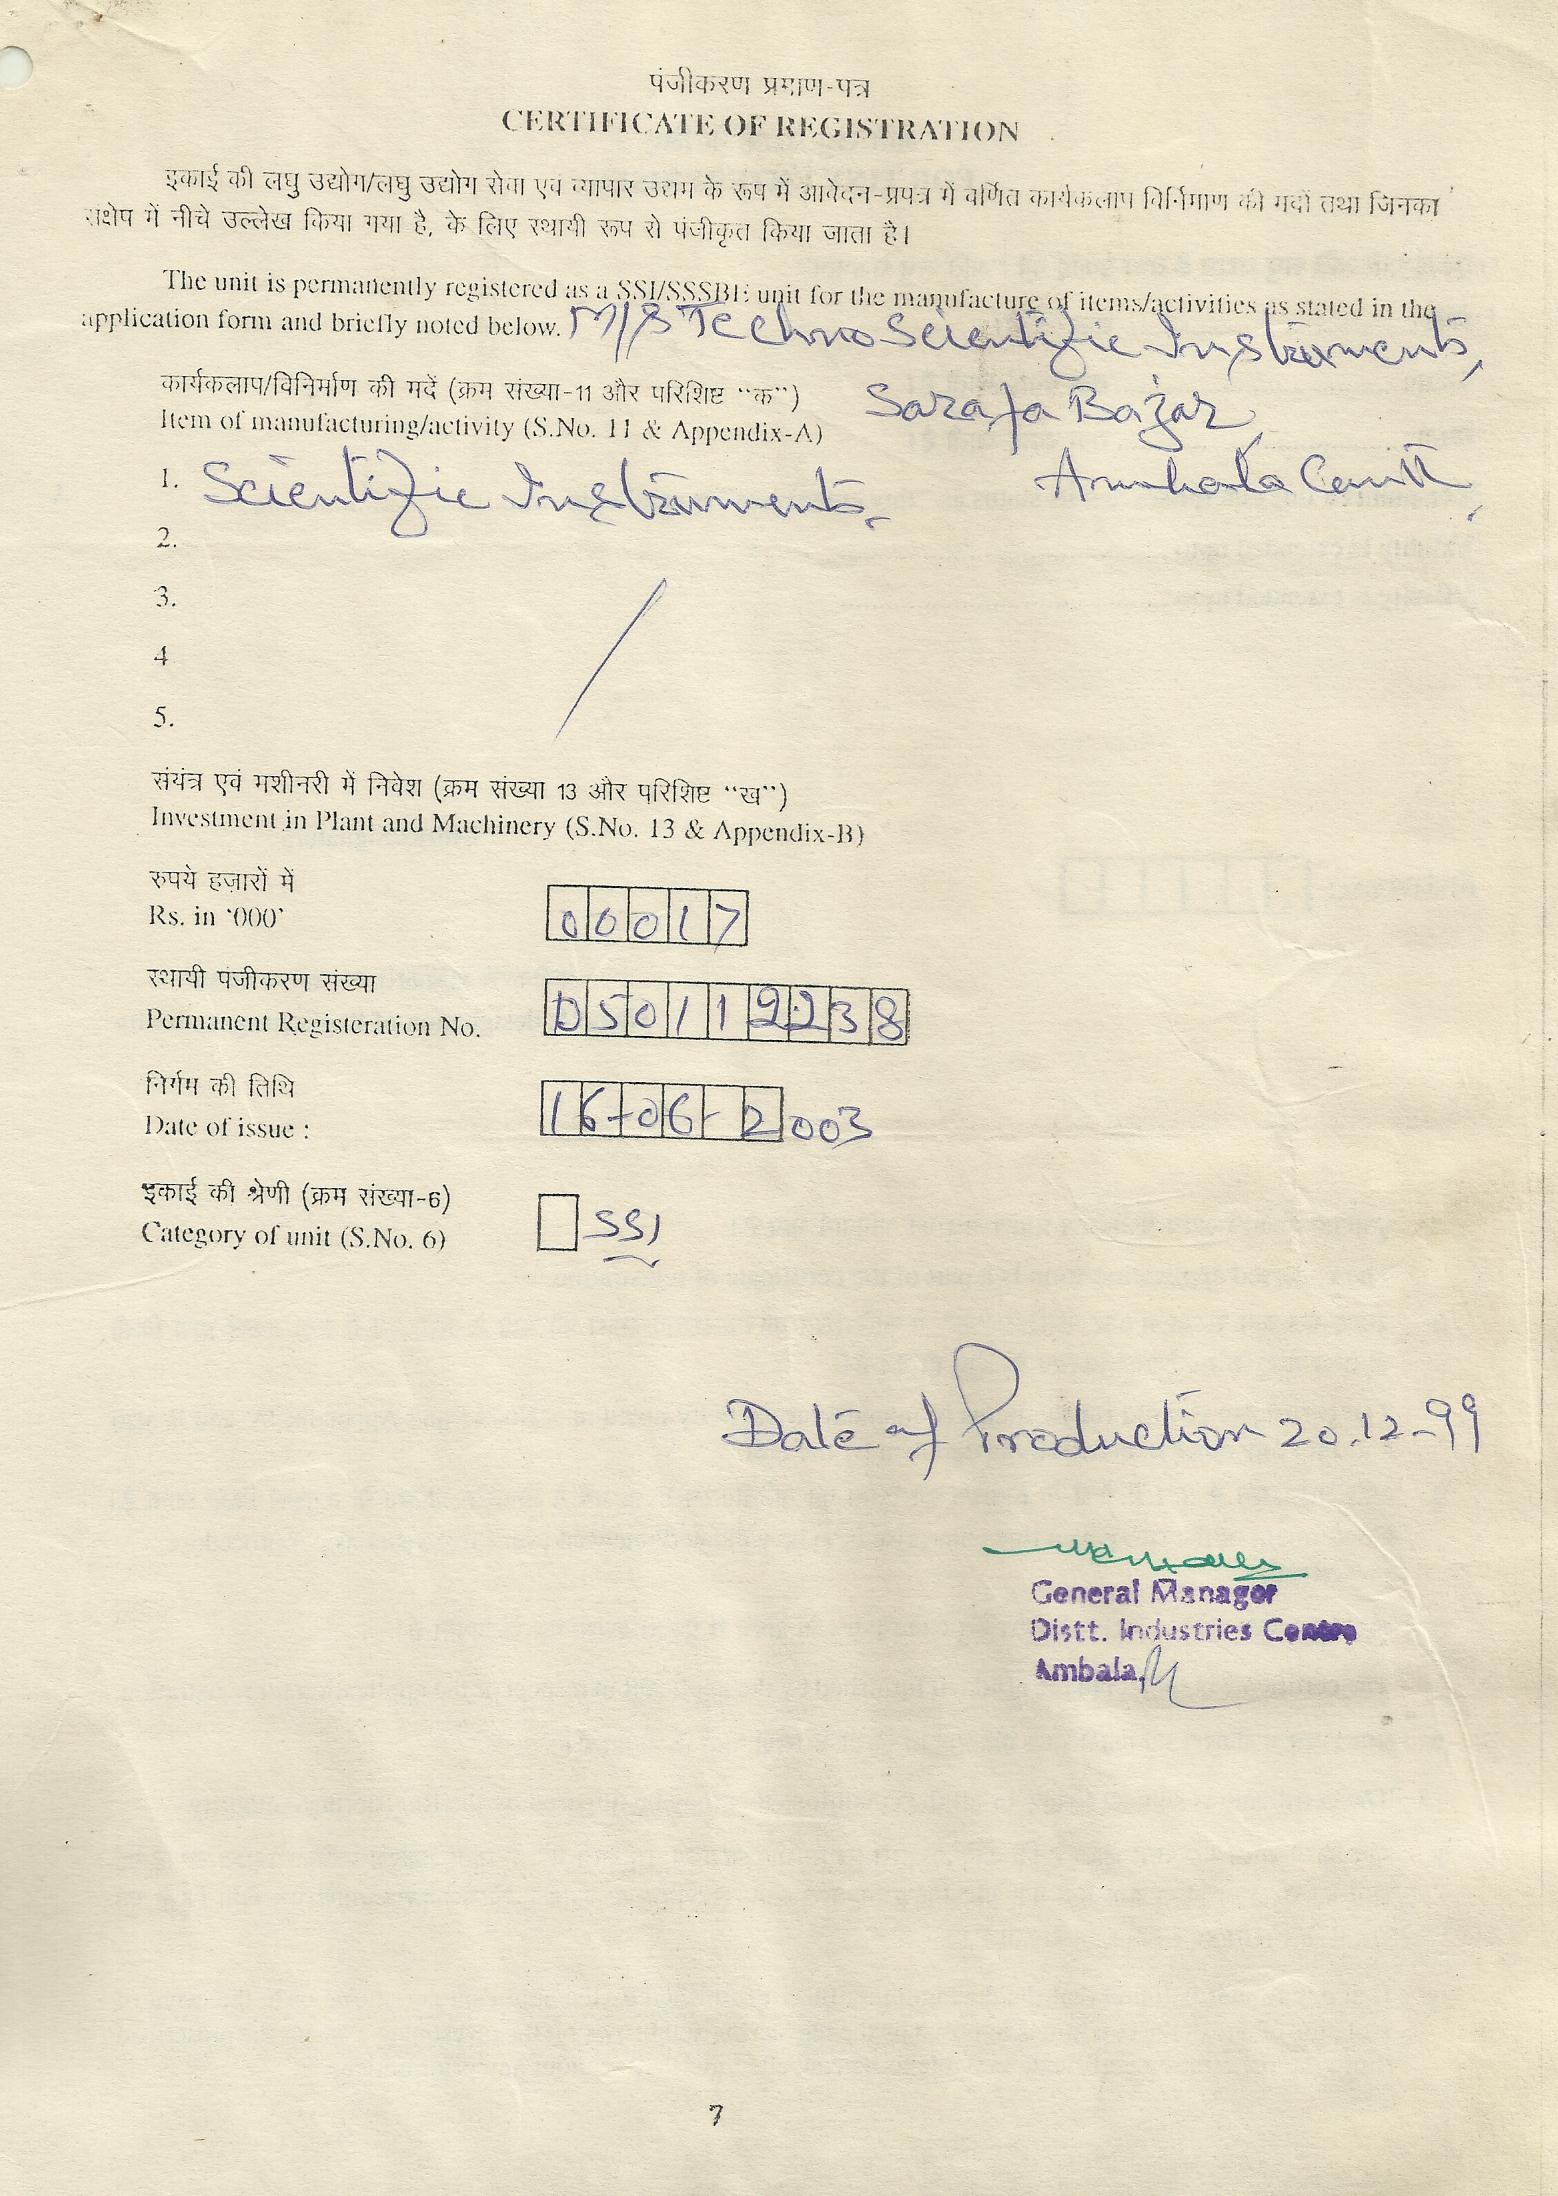 पंजीकरण प्रमाण-पत्र
CERTIFICATE OF REGISTRATION
इकाई की लघु उद्योग/लघु उद्योग सेवा एवं व्यापार उद्यम के रूप में आवेदन-प्रपत्र में वर्णित कार्यकलाप विर्निमाण की मदों तथा जिनका
संक्षेप में नीचे उल्लेख किया गया है, के लिए स्थायी रूप से पंजीकृत किया जाता है।
The unit is permanently registered as a SSI/SSSBE unit for the manufacture of items/activities as stated in the
application form and briefly noted below. M/S Techno Scientific Instruments,
कार्यकलाप/विनिर्माण की मदें (क्रम संख्या-11 और परिशिष्ट “क”)
Sarafa Bazar,
Item of manufacturing/activity (S.No. 11 & Appendix-A)
Ambala Cantt,
1. Scientific Instruments,
2.
3.
4
5.
संयंत्र एवं मशीनरी में निवेश (क्रम संख्या 13 और परिशिष्ट “ख”)
Investment in Plant and Machinery (S.No. 13 & Appendix-B)
रुपये हज़ारों में
Rs. in ‘000’ 00017
स्थायी पंजीकरण संख्या
Permanent Registeration No. 050112238
निर्गम की तिथि
Date of issue : 16-06-2003
इकाई की श्रेणी (क्रम संख्या-6)
Category of unit (S.No. 6) SSI
Date of Production 20.12-99
General Manager
Distt. Industries Centre
Ambala.
7